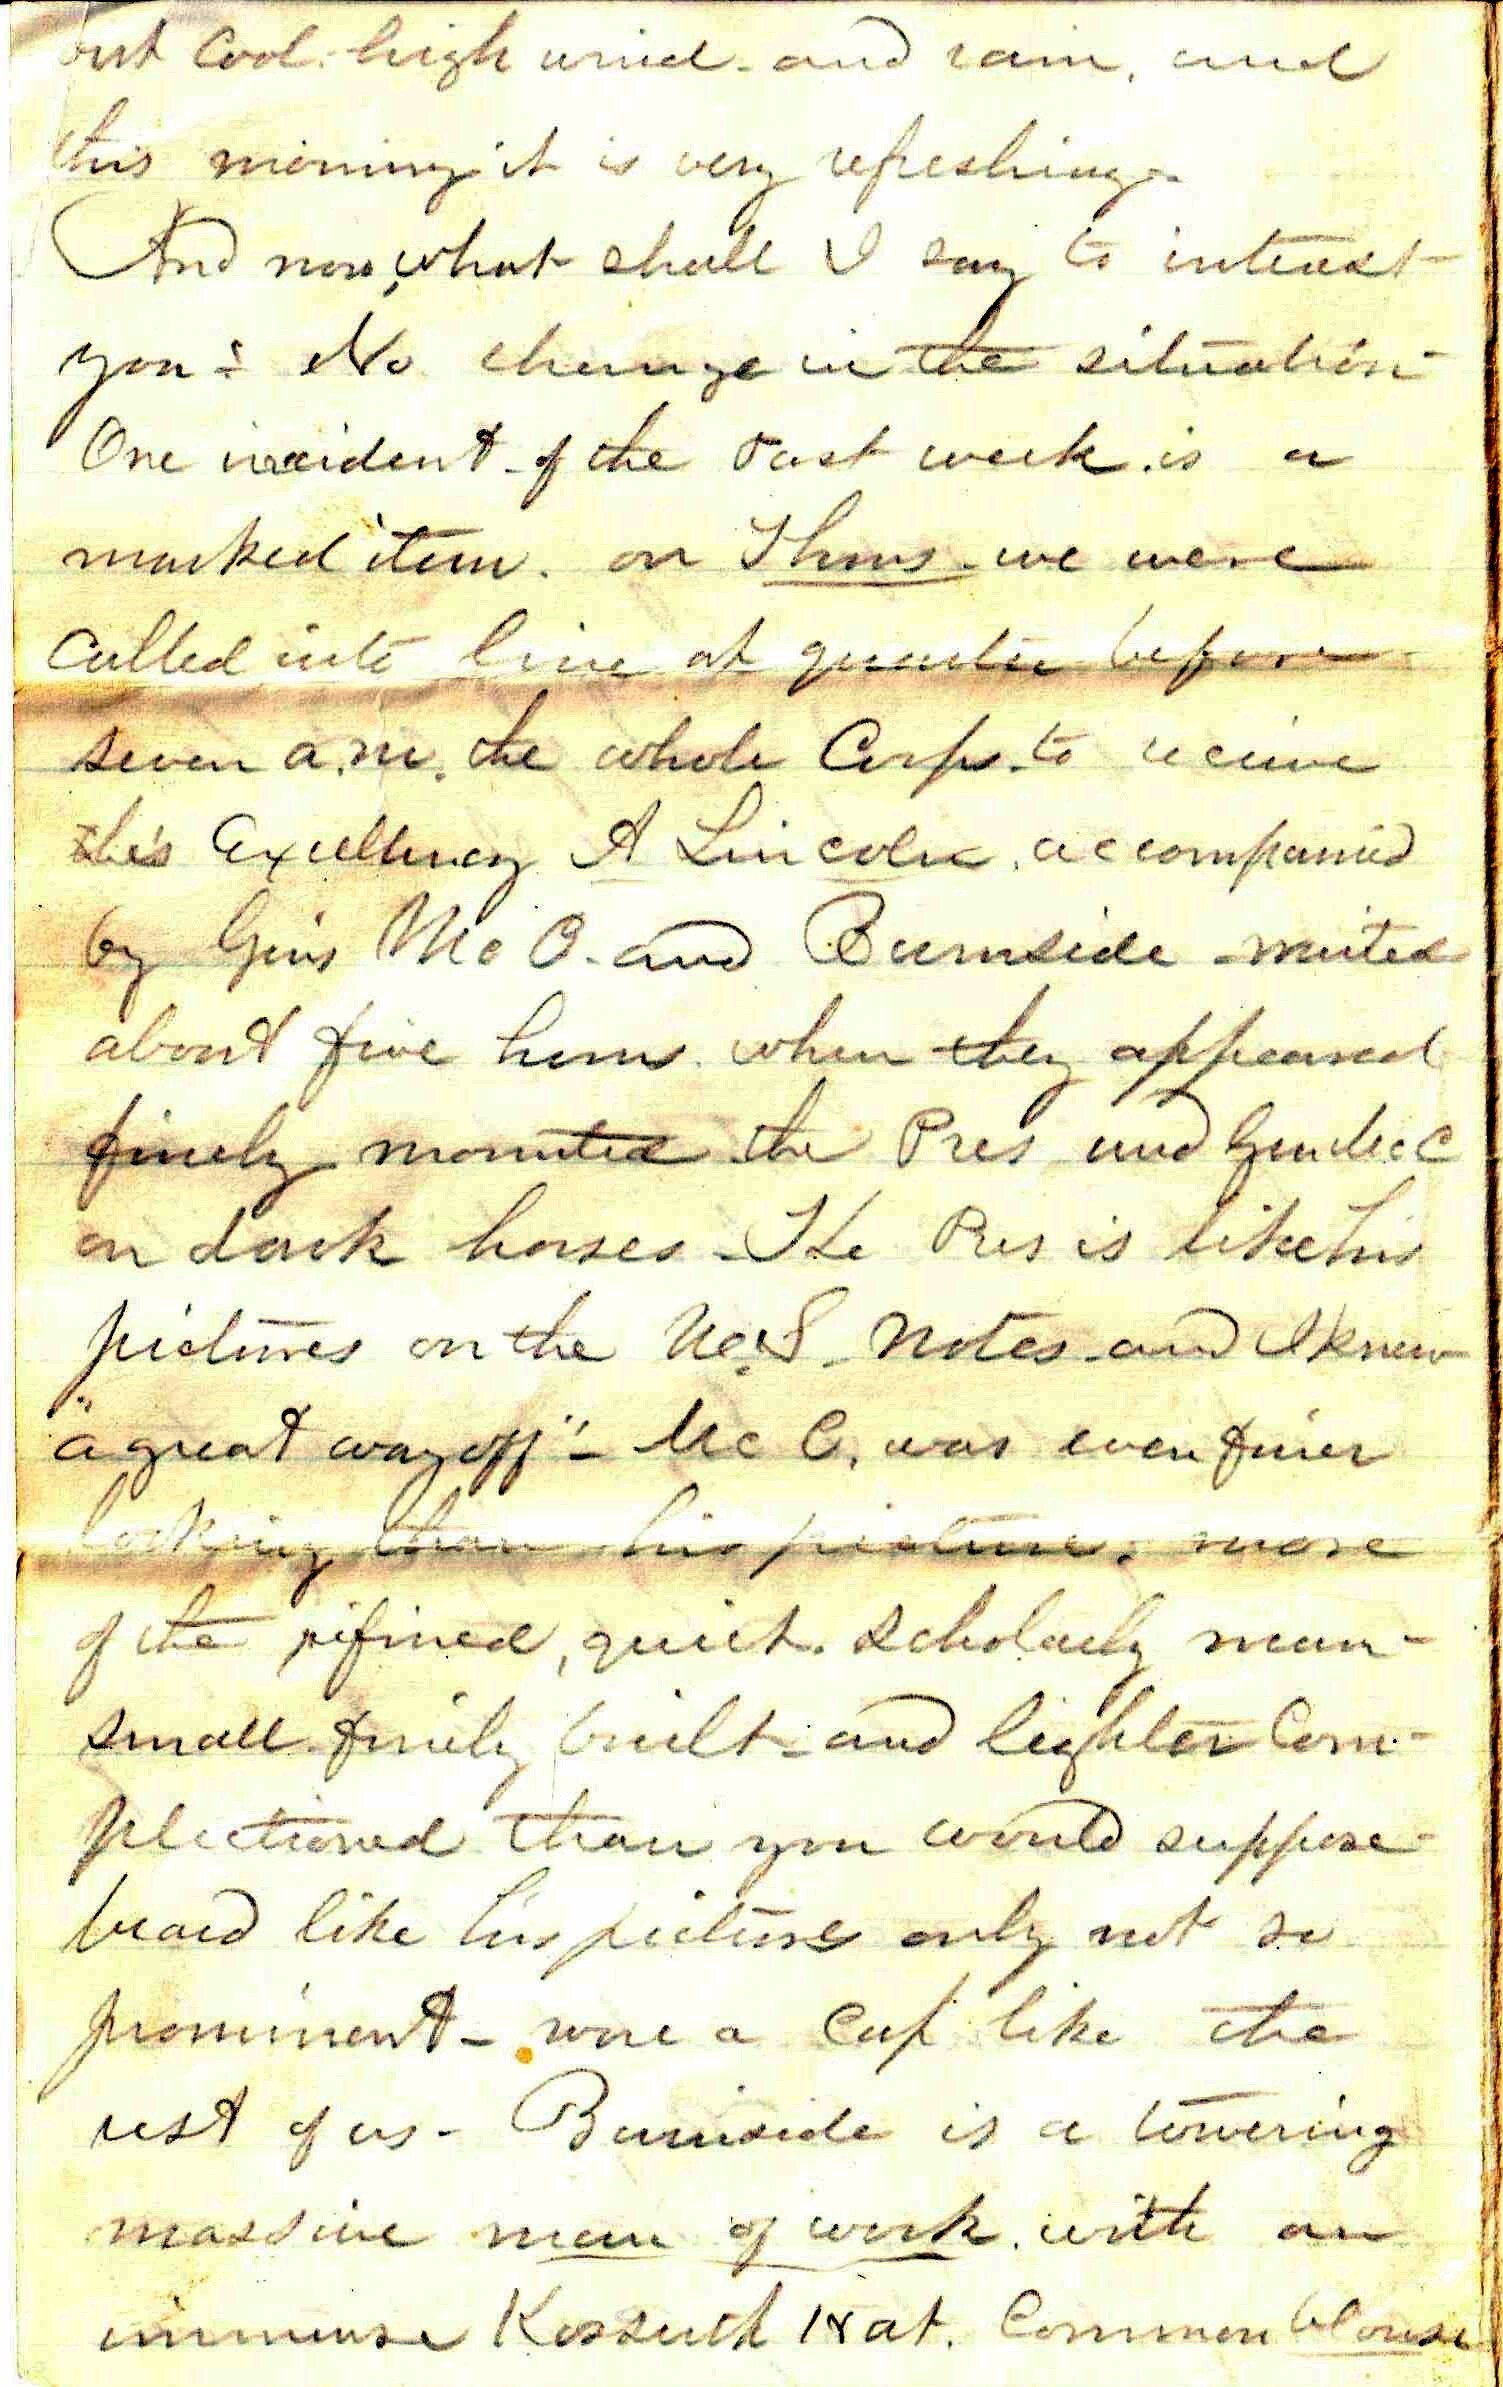 but cool. high wind - and rain, and
this morning it is very refreshing -
And now, what shall I say to interest
you - No change in the situation -
One incident - of the past week. is a
marked item. on Thurs - we were
called into line at quarter before
seven a.m. the whole Corps. to receive
his Excellency A Lincoln. accompanied
by Gens Mc C. and Burnside - waited
about five hours. when they appeared
finely mounted the Pres and Gen Mc C
on dark horses - The Pres is like his
pictures on the U.S. Notes - and I knew
"a great way off" - Mc C. was even finer
looking than his picture. more
of the refined, quiet. scholarly man -
small finely built - and lighter Com-
plectioned than you would suppose -
beard like his pictures only not so
prominent - wore a cap like the
rest of us - Burnside is a towering
massive man of work. with an
immense Kossuth Hat. Common blouse